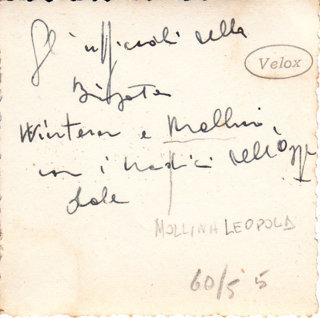 Gli ufficiali della
Velox
Brigata
e Mollina,
con i medici dell'Ospe
dale
MOLLINA LEOPOLD
60/5 5